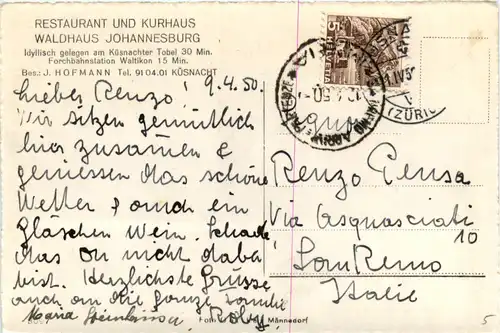 RESTAURANT UND KURHAUS
WALDHAUS JOHANNESBURG
Idyllisch gelegen am Küsnachter Tobel 30 Min.
Forchbahnstation Waltikon 15 Min.
Bes.: J. HOFMANN Tel. 91 04 01 KÜSNACHT
Lieber Renzo! 9.4.50.
Wir sitzen gemütlich
hier zusammen &
geniessen das schöne
Wetter & auch ein
Gläschen Wein. Schade
das du nicht dabei
bist. Herzlichste Grüsse
auch an die ganze Familie
Maria
Roby
HELVETIA
5
(ZÜRICH)
Renzo Pensa
Via Asquasciati
10
San Remo
Italie
Männedorf
5